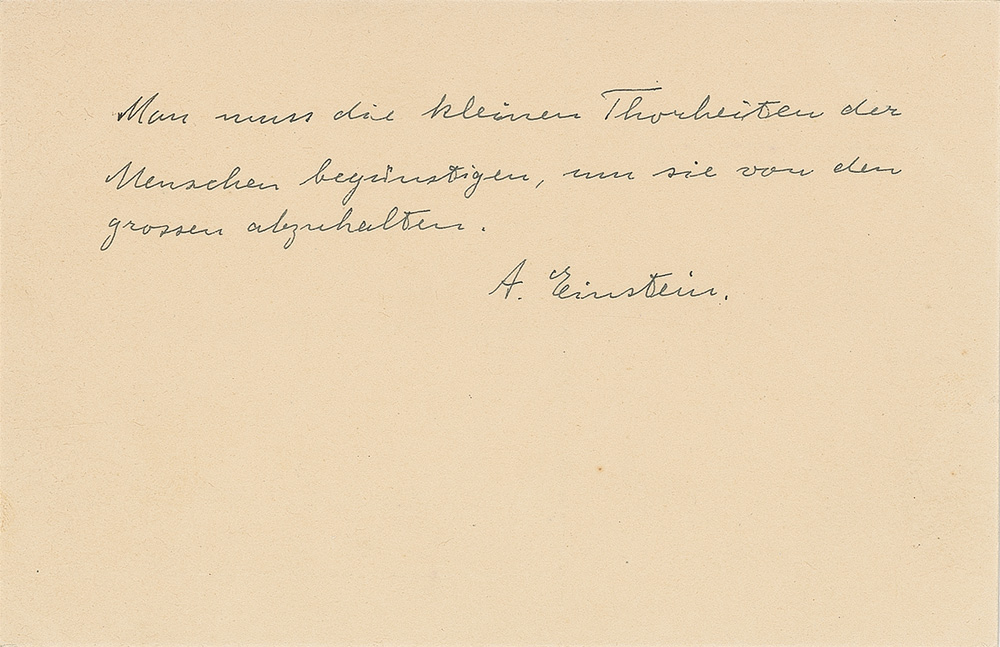 Man muss die kleinen Thorheiten der
Menschen begünstigen, um sie von den
grossen abzuhalten.
A. Einstein.